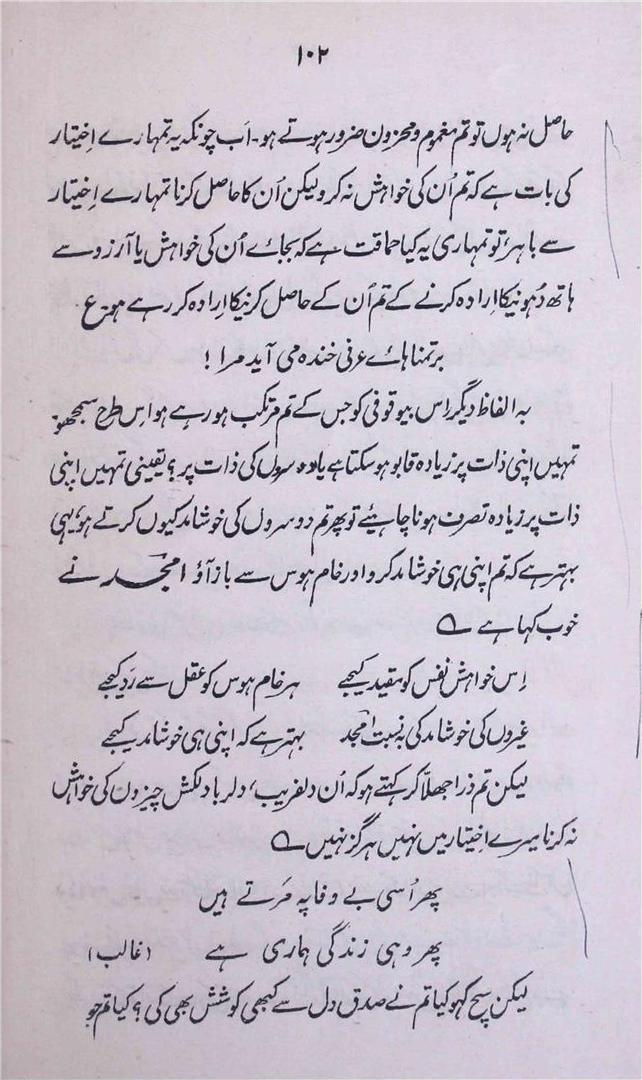 ۱۰۲
حاصل نہ ہوں تو تم مغموم و محزون ضرور ہوتے ہو۔ اَب چونکہ یہ تمہارے اِختیار
کی بات ہے کہ تم اُن کی خواہش نہ کرو لیکن اُن کا حاصل کرنا تمہارے اِختیار
سے باہر، تو تمہاری یہ کیا حماقت ہے کہ بجائے اُن کی خواہش یا آرزو سے
ہاتھ دُہونیکا اِرادہ کرنے کے تم اُن کے حاصل کرنیکا اِرادہ کر رہے ہو۔ ع
برتمناہائے عرفی خندہ می آید مرا !
بہ الفاظ دیگر اِس بیوقوفی کو جس کے تم مرتکب ہو رہے ہو اِس طرح سمجھو:
تمہیں اپنی ذات پر زیادہ قابو ہوسکتا ہے یا دوسروں کی ذات پر؟ یقینی تمہیں اپنی
ذات پر زیادہ تصرف ہونا چاہیئے تو پھر تم دوسروں کی خوشامد کیوں کرتے ہو، یہی
بہتر ہے کہ تم اپنی ہی خوشامد کرو اور خام ہوس سے باز آؤ امجد نے
خوب کہا ہے ؎
اِس خواہش نفس کو مقید کیجے ہر خام ہوس کو عقل سے رَد کیجے
غیروں کی خوشامد کی بہ نسبت امجد بہتر ہے کہ اپنی ہی خوشامد کیجے
لیکن تم ذرا جھلّا کر کہتے ہو کہ اُن دلفریب، دلربا دلکش چیزوں کی خواہش
نہ کرنا میرے اِختیار میں نہیں ہرگز نہیں ؎
پھر اُسی بے وفا پہ مَرتے ہیں
پھر وہی زندگی ہماری ہے (غالب)
لیکن سچ کہو کیا تم نے صدق دل سے کبھی کوشش بھی کی؟ کیا تم جو